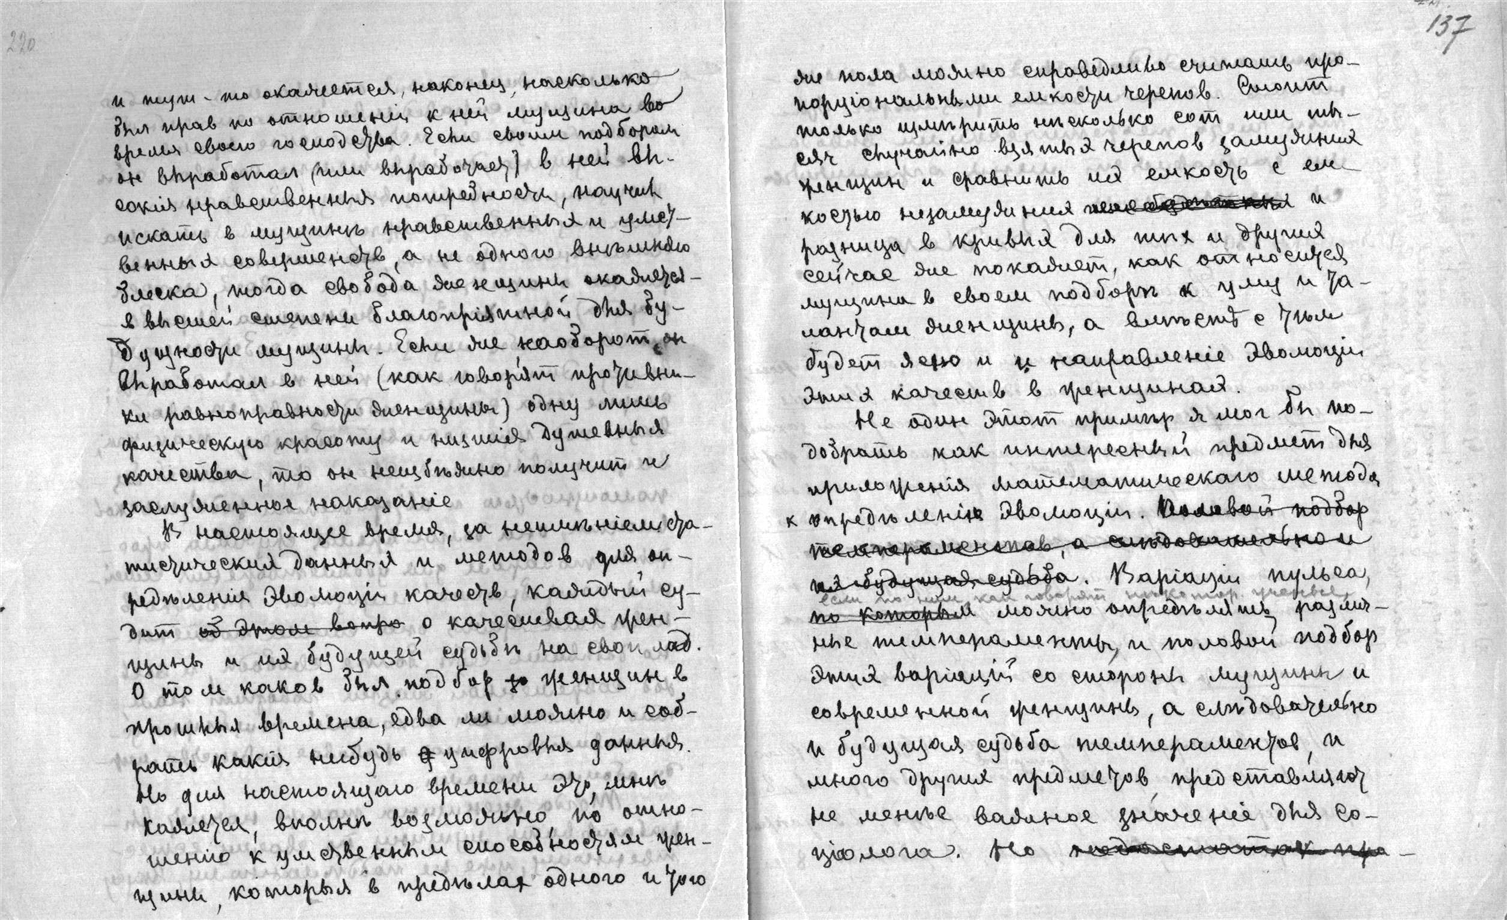 220
и тут-то окажется, наконец, насколько
был прав по отношенiю к ней мущина во
время своего господства. Если своим подбором
он выработал (или выработает) в ней вы-
сокiя нравственныя потребности, научил
искать в мущинѣ нравственных и умст-
венных совершенств, а не одного внѣшняго
блеска, тогда свобода женщины окажется
в высшей степени благопрiятной для бу-
дущности мущины. Если же наоборот, он
выработал в ней (как говорят противни-
ки равноправности женщины) одну лишь
физическую красоту и низшiя душевныя
качества, то он неизбѣжно получит и
заслуженное наказанiе
В настоящее время, за неимѣнiем ста-
тистических данных и методов для оп-
редѣленiя эволюцiи качеств, каждый су-
дит об этом вопро о качествах жен-
щины и их будущей судьбѣ на свой лад.
О том каков был подбор женщин в
прошлыя времена, едва ли можно и соб-
рать какiя нибудь цифровыя данныя.
Но для настоящаго времени это, мнѣ
кажется, вполнѣ возможно по отно-
шенiю к умственным способностям жен-
щины, которыя в предѣлах одного и того
137
же пола можно справедливо считать про-
порцiональными емкости черепов. Стоит
только измѣрить нѣсколько сот или ты-
сяч случайно взятых черепов замужних
женщин и сравнить их емкость с ем-
костью незамужних и
разница в кривых для тѣх и других
сейчас же покажет, как относится
мущина в своем подборѣ к уму и та-
лантам женщины, а вмѣстѣ с тѣм
будет ясно и направленiе эволюцiи
этих качеств в женщинах.
Не один этот примѣр я мог бы по-
добрать как интересный предмет для
приложенiя математическаго метода
к опредѣленiю эволюцiи. Половой подбор
темпераментов, а слѣдовательно и
их будущая судьба. Варiацiи пульса,
если по ним, как говорят нѣкотор. ученые,
по которым можно опредѣлять различ-
ные темпераменты, и половой подбор
этих варiацiй со стороны мущины и
современной женщины, а слѣдовательно
и будущая судьба темпераментов, и
много других предметов, представляют
не менѣе важное значенiе для со-
цiолога. Но недостаток про-